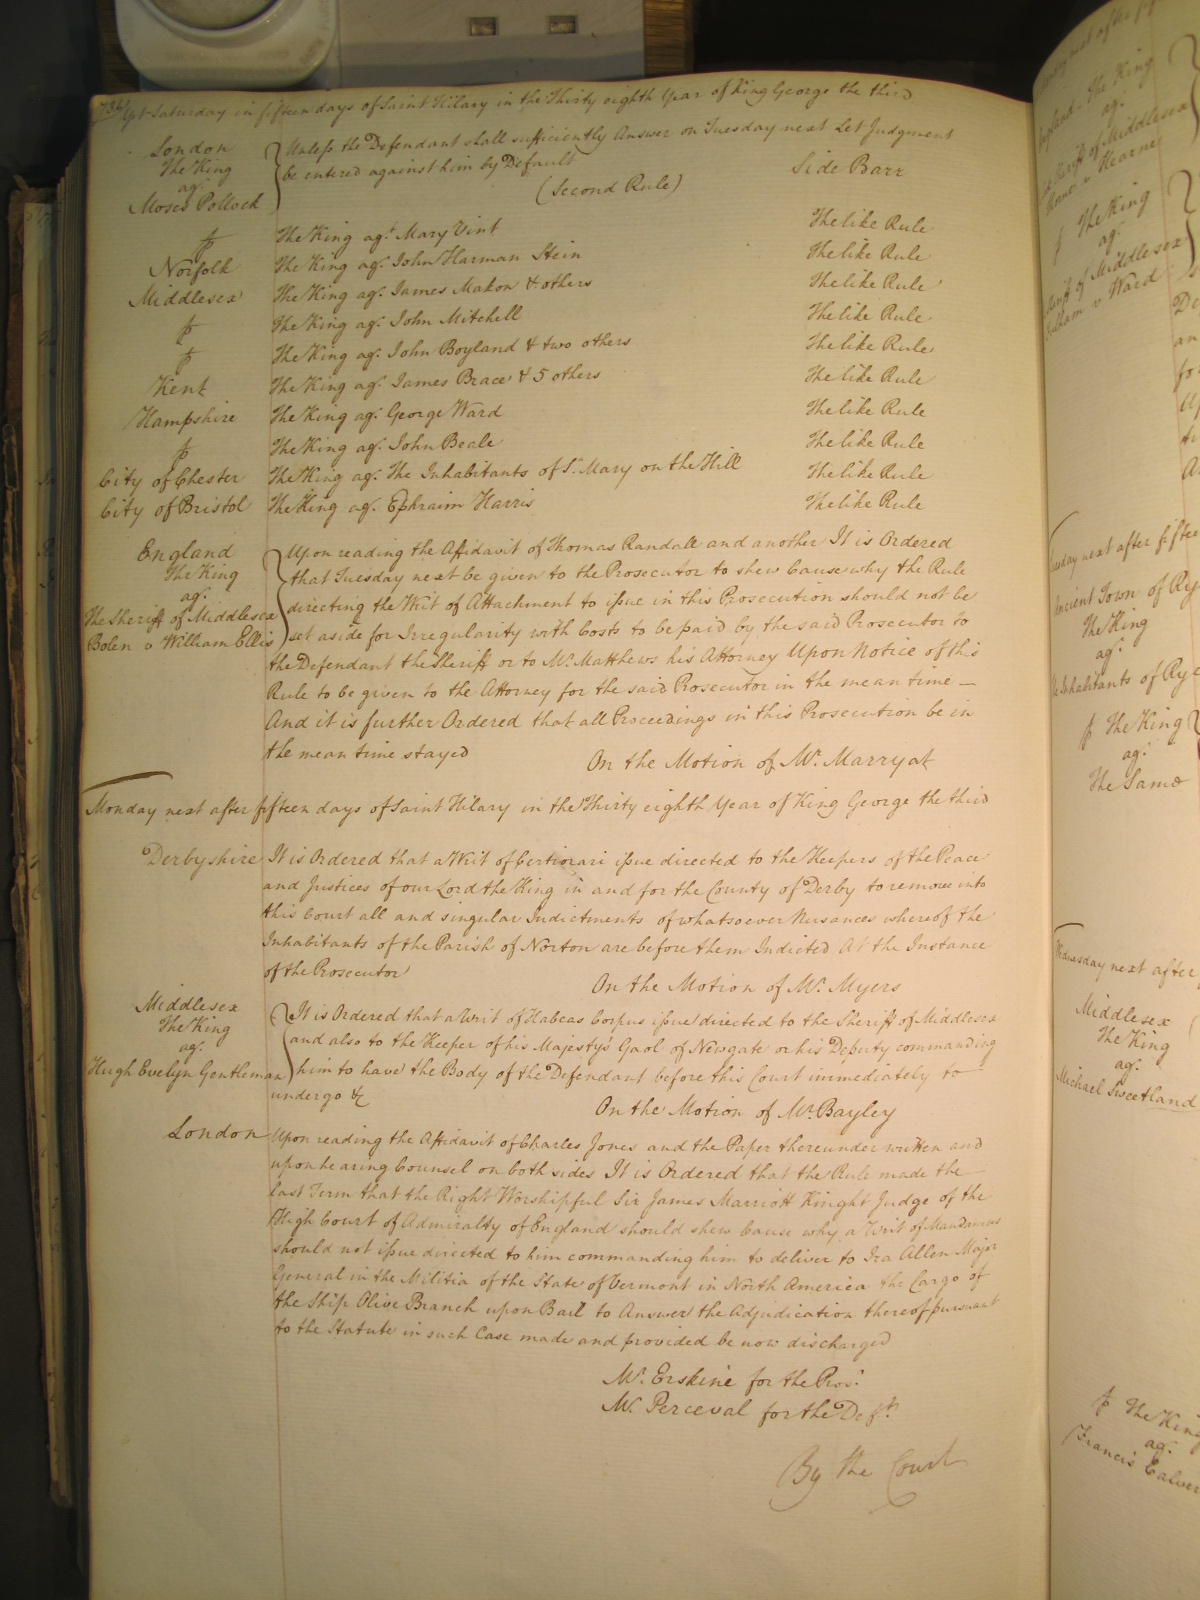 yet Saturday in fifteen days of Saint Hilary in the Thirty eighth Year of King George the third
London
The King
agt
Moses Pollock
Unless the Defendant shall sufficiently Answer on Tuesday next Let Judgment
be entered against him by Default
Side Barr
(Second Rule)
The King agt Mary Vint The like Rule
Norfolk The King agt John Harman Stein The like Rule
Middlesex The King agt James Makon & others The like Rule
The King agt John Mitchell The like Rule
The King agt John Boyland & two others The like Rule
Kent The King agt James Brace & 5 others The like Rule
Hampshire The King agt George Ward The like Rule
The King agt John Beale The like Rule
City of Chester The King agt The Inhabitants of St Mary on the Hill The like Rule
City of Bristol The King agt Ephraim Harris The like Rule
England
The King
agt
The Sheriff of Middlesex
Bolen v William Ellis
Upon reading the Affidavit of Thomas Randall and another It is Ordered
that Tuesday next be given to the Prosecutor to shew Cause why the Rule
directing the Writ of Attachment to issue in this Prosecution should not be
set aside for Irregularity with Costs to be paid by the said Prosecutor to
the Defendant the Sheriff or to Mr Matthews his Attorney Upon Notice of this
Rule to be given to the Attorney for the said Prosecutor in the mean time —
And it is further Ordered that all Proceedings in this Prosecution be in
the mean time stayed
On the Motion of Mr Marryat
Monday next after fifteen days of Saint Hilary in the Thirty eighth Year of King George the third
Derbyshire It is Ordered that a Writ of Certiorari issue directed to the Keepers of the Peace
and Justices of our Lord the King in and for the County of Derby to remove into
this Court all and singular Indictments of whatsoever Nusances whereof the
Inhabitants of the Parish of Norton are before them Indicted At the Instance
of the Prosecutor
On the Motion of Mr Myers
Middlesex
The King
agt
Hugh Evelyn Gentleman
It is Ordered that a Writ of Habeas Corpus issue directed to the Sheriff of Middlesex
and also to the Keeper of his Majesty's Gaol of Newgate or his Deputy commanding
him to have the Body of the Defendant before this Court immediately to
undergo &c
On the Motion of Mr Bayley
London Upon reading the Affidavit of Charles Jones and the Paper thereunder written and
upon hearing Counsel on both sides It is Ordered that the Rule made the
last Term that the Right Worshipful Sir James Marriott Knight Judge of the
High Court of Admiralty of England should shew Cause why a Writ of Mandamus
should not issue directed to him commanding him to deliver to Ira Allen Major
General in the Militia of the State of Vermont in North America the Cargo of
the Ship Olive Branch upon Bail to Answer the Adjudication thereof pursuant
to the Statute in such Case made and provided be now discharged
Mr Erskine for the Pros:
Mr Perceval for the Deft
By the Court
The King
agt
Sheriff of Middlesex
v Hearne
The King
agt
Sheriff of Middlesex
v Ward
next after
Ancient Town of Rye
The King
agt
Inhabitants of Rye
The King
agt
The Same
Wednesday next after
Middlesex
The King
agt
Michael Sweetland
The King
agt
Francis